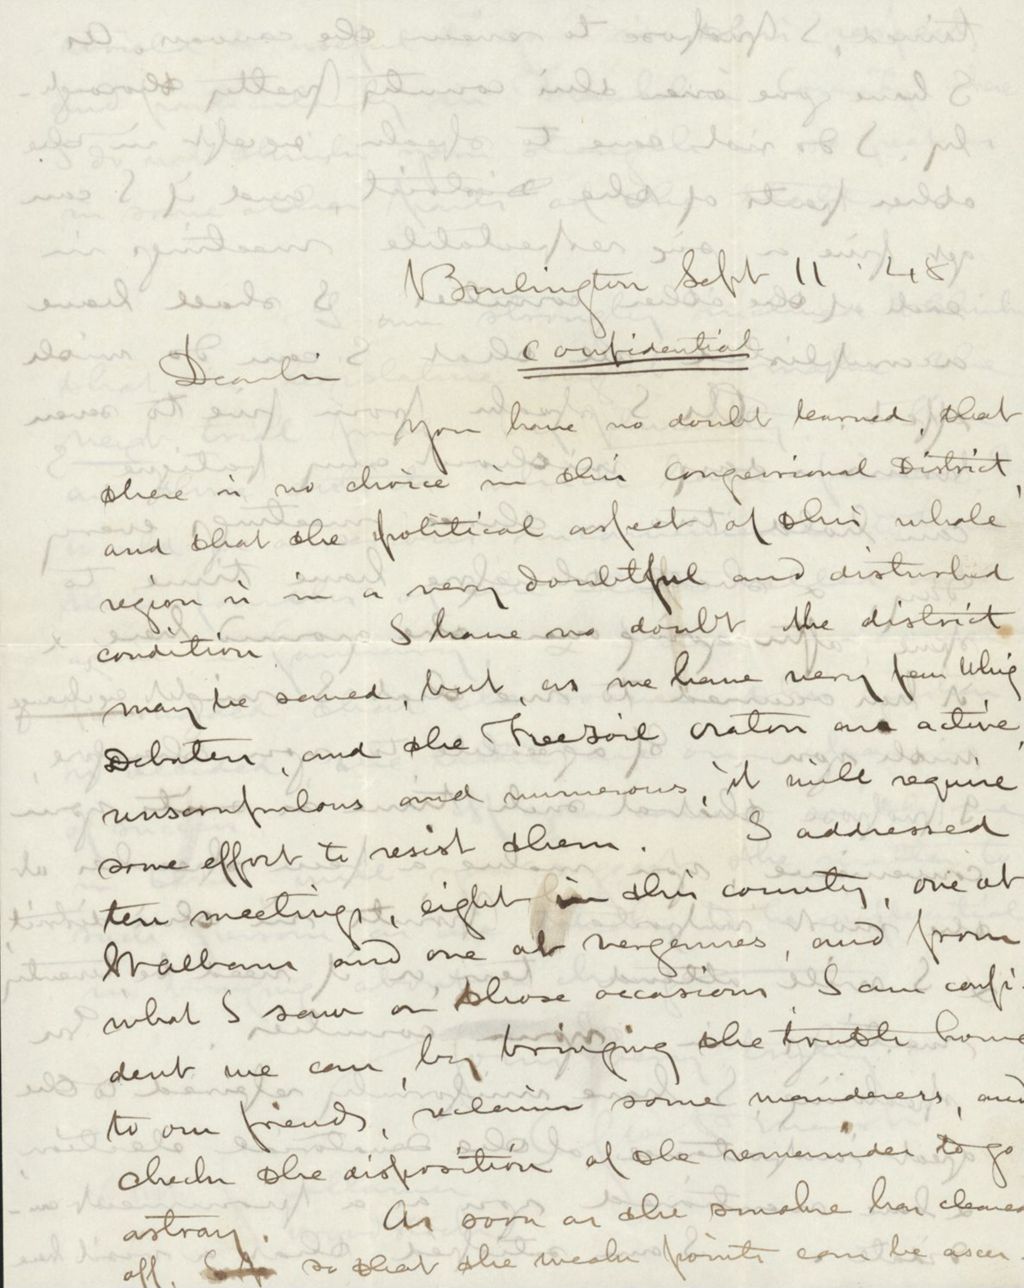 Burlington Sept 11 '48
Confidential
Dear Sir
You have no doubt learned, that
there is no choice in this Congressional District,
and that the political aspect of this whole
region is in a very doubtful and disturbed
condition I have no doubt the district
may be saved, but, as we have very few Whig
Debaters, and the Freesoil orators are active,
unscrupulous and numerous, it will require
some effort to resist them. I addressed
ten meetings, eight in this county, one at
St Albans and one at Vergennes, and from
what I saw on those occasions, I am confi-
dent we can, by bringing the truth home
to our friends, reclaim some wanderers, and
check the disposition of the remainder to go
astray. As soon as the smoke has cleared
off, so that the weak points can be ascer-